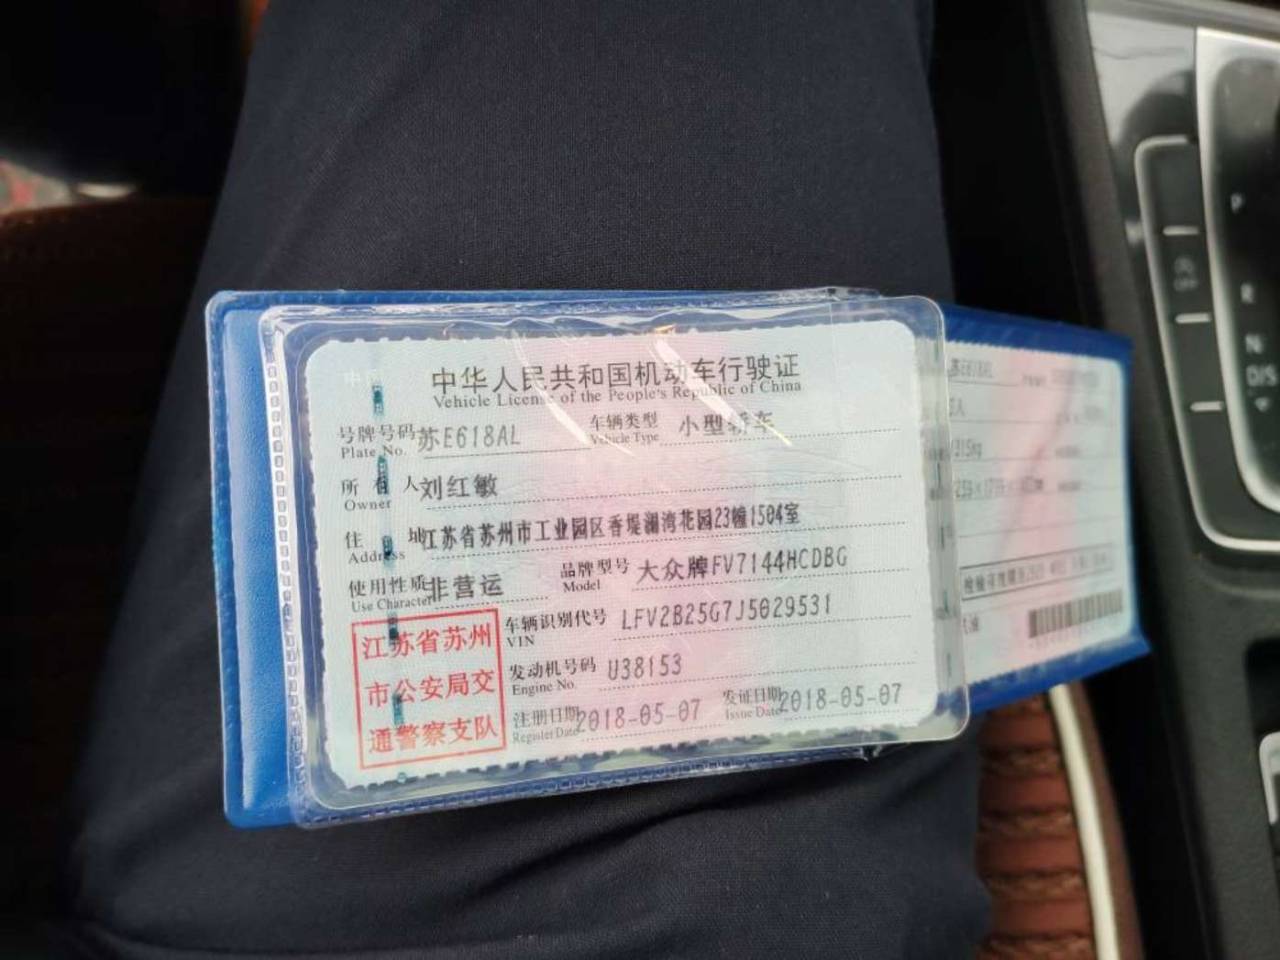 中华人民共和国机动车行驶证
Vehicle License of the People's Republic of China
号牌号码 苏E618AL 车辆类型 小型轿车
Plate No. Vehicle Type
所有人 刘红敏
Owner
住址 江苏省苏州市工业园区香堤澜湾花园23幢1504室
Address
使用性质 非营运 品牌型号 大众牌FV7144HCDBG
Use Character Model
江苏省苏州
市公安局交
通警察支队
车辆识别代号 LFV2B25G7J5029531
VIN
发动机号码 U38153
Engine No.
注册日期 2018-05-07 发证日期 2018-05-07
Register Date Issue Date
P
R
N
D/S
OFF